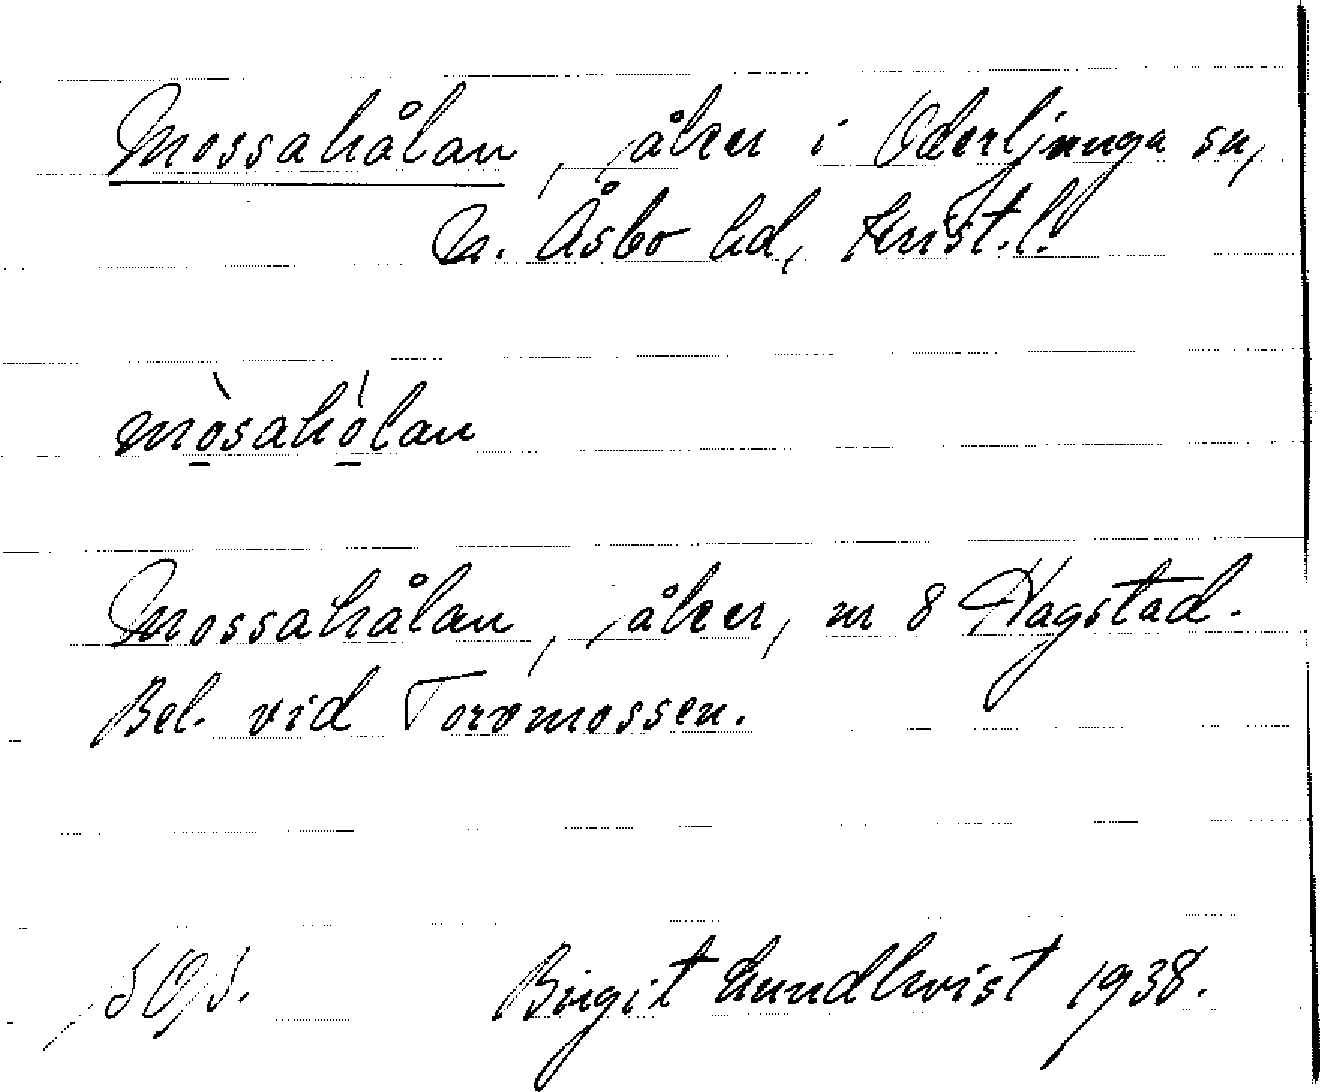 Mossahålan, åker i Oderljunga sn,
N. Åsbo hd, Krist.l.
mòsahólan
Mossahålan, åker, nr 8 Hagstad.
Bel. vid Torvmossen.
Birgit Lundkvist 1938.